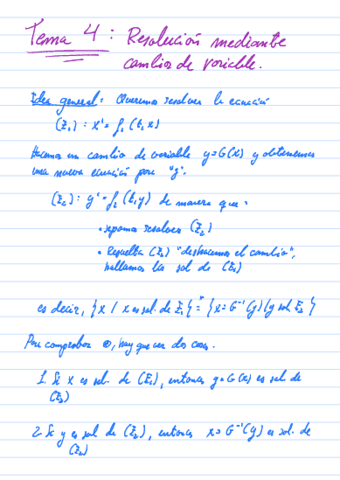 Tema 4: Resolución mediante
cambio de variable.
Idea general: Queremos resolver la ecuación
(E₁): x' = f₁(t,x)
Hacemos un cambio de variable y=G(x) y obtenemos
una nueva ecuación para "y".
(E₂): y' = f₂(t,y) de manera que:
• sepamos resolver (E₂)
• Resuelta (E₂) "deshacemos el cambio",
hallamos la sol de (E₁)
es decir, { x / x es sol. de E₁ } = { x = G⁻¹(y) / y sol E₂ }
Para comprobar, hay que ver dos cosas.
1. Si x es sol. de (E₁), entonces y=G(x) es sol de
(E₂)
2. Si y es sol de (E₂), entonces x = G⁻¹(y) es sol. de